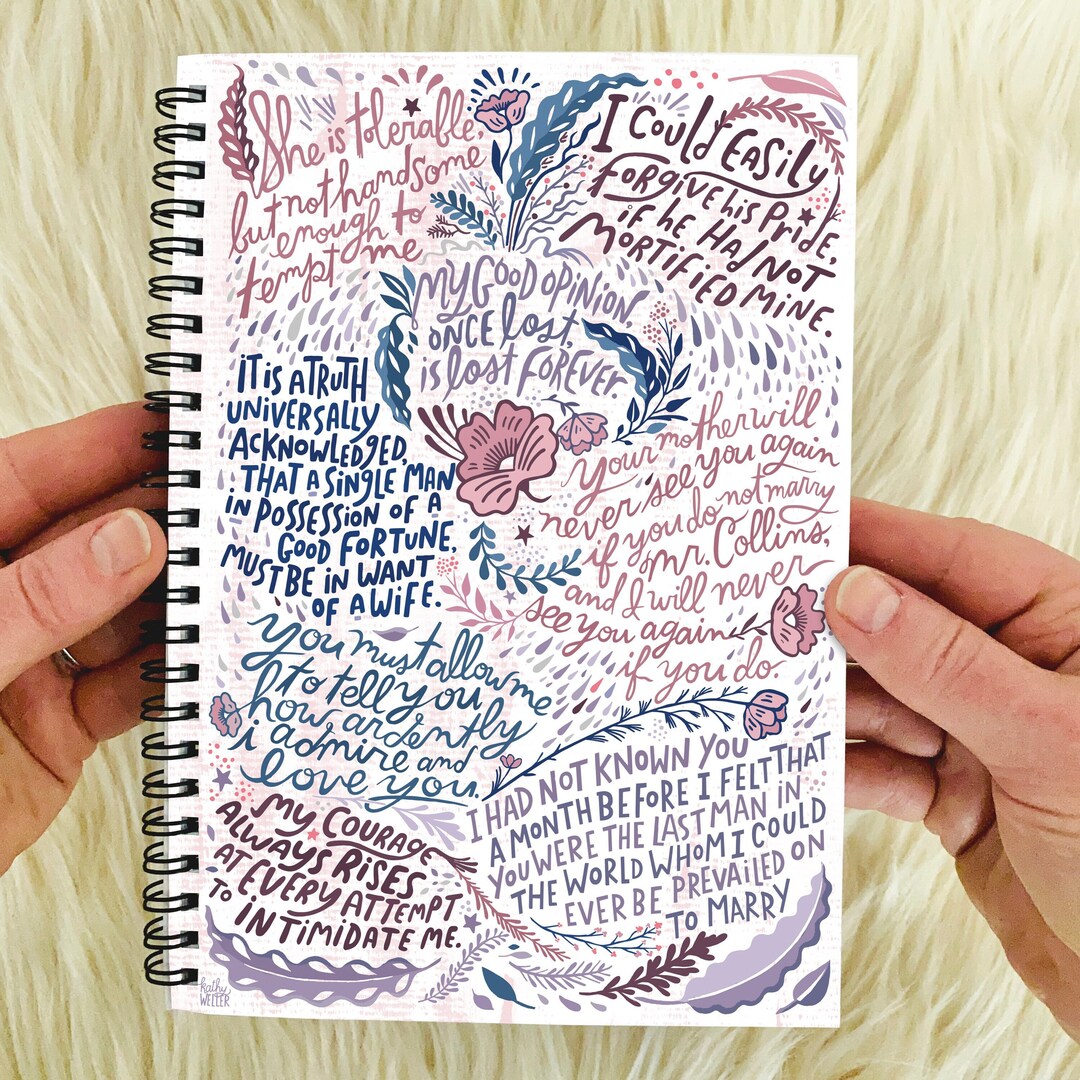 She is tolerable,
but not handsome
enough to
tempt me
I COULD EASILY
FORGIVE his PRIDE,
if he HAd NOT
MORTIFIED MINE.
MY GOOD OPINION
ONCE lost,
is lost FOREVER
IT IS A TRUTH
UNIVERSALLY
ACKNOWLEDGED,
THAT A SINGLE MAN
IN POSSESSION OF A
GOOD FORTUNE,
MUST BE IN WANT
OF A WIFE.
Your mother will
never see you again
if you do not marry
Mr. Collins,
and I will never
see you again
if you do.
You must allow me
to tell you
how ardently
i admire and
love you.
MY COURAGE
ALWAYS RISES
AT EVERY ATTEMPT
TO INTIMIDATE ME.
I HAD NOT KNOWN YOU
A MONTH BEFORE I FELT THAT
YOU WERE THE LAST MAN IN
THE WORLD WHOM I COULD
EVER BE PREVAILED ON
TO MARRY
kathy
WELLER